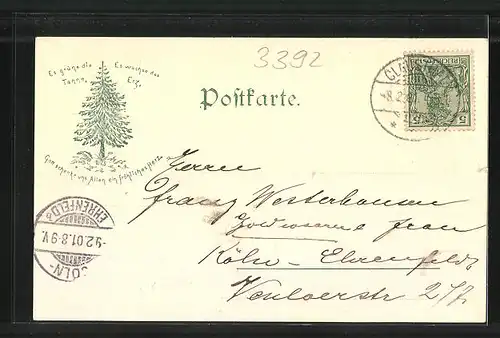 3392
Es grüne die Tanne,
Es wachse das Erz,
Gott schenke uns Allen ein fröhliches Herz
Postkarte.
REICHSPOST
5 5
8.2
Herrn
Franz Westerhausen
Köln-Ehrenfeld
Venloerstr 277
CÖLN-EHRENFELD
9.2.01.8-9V.